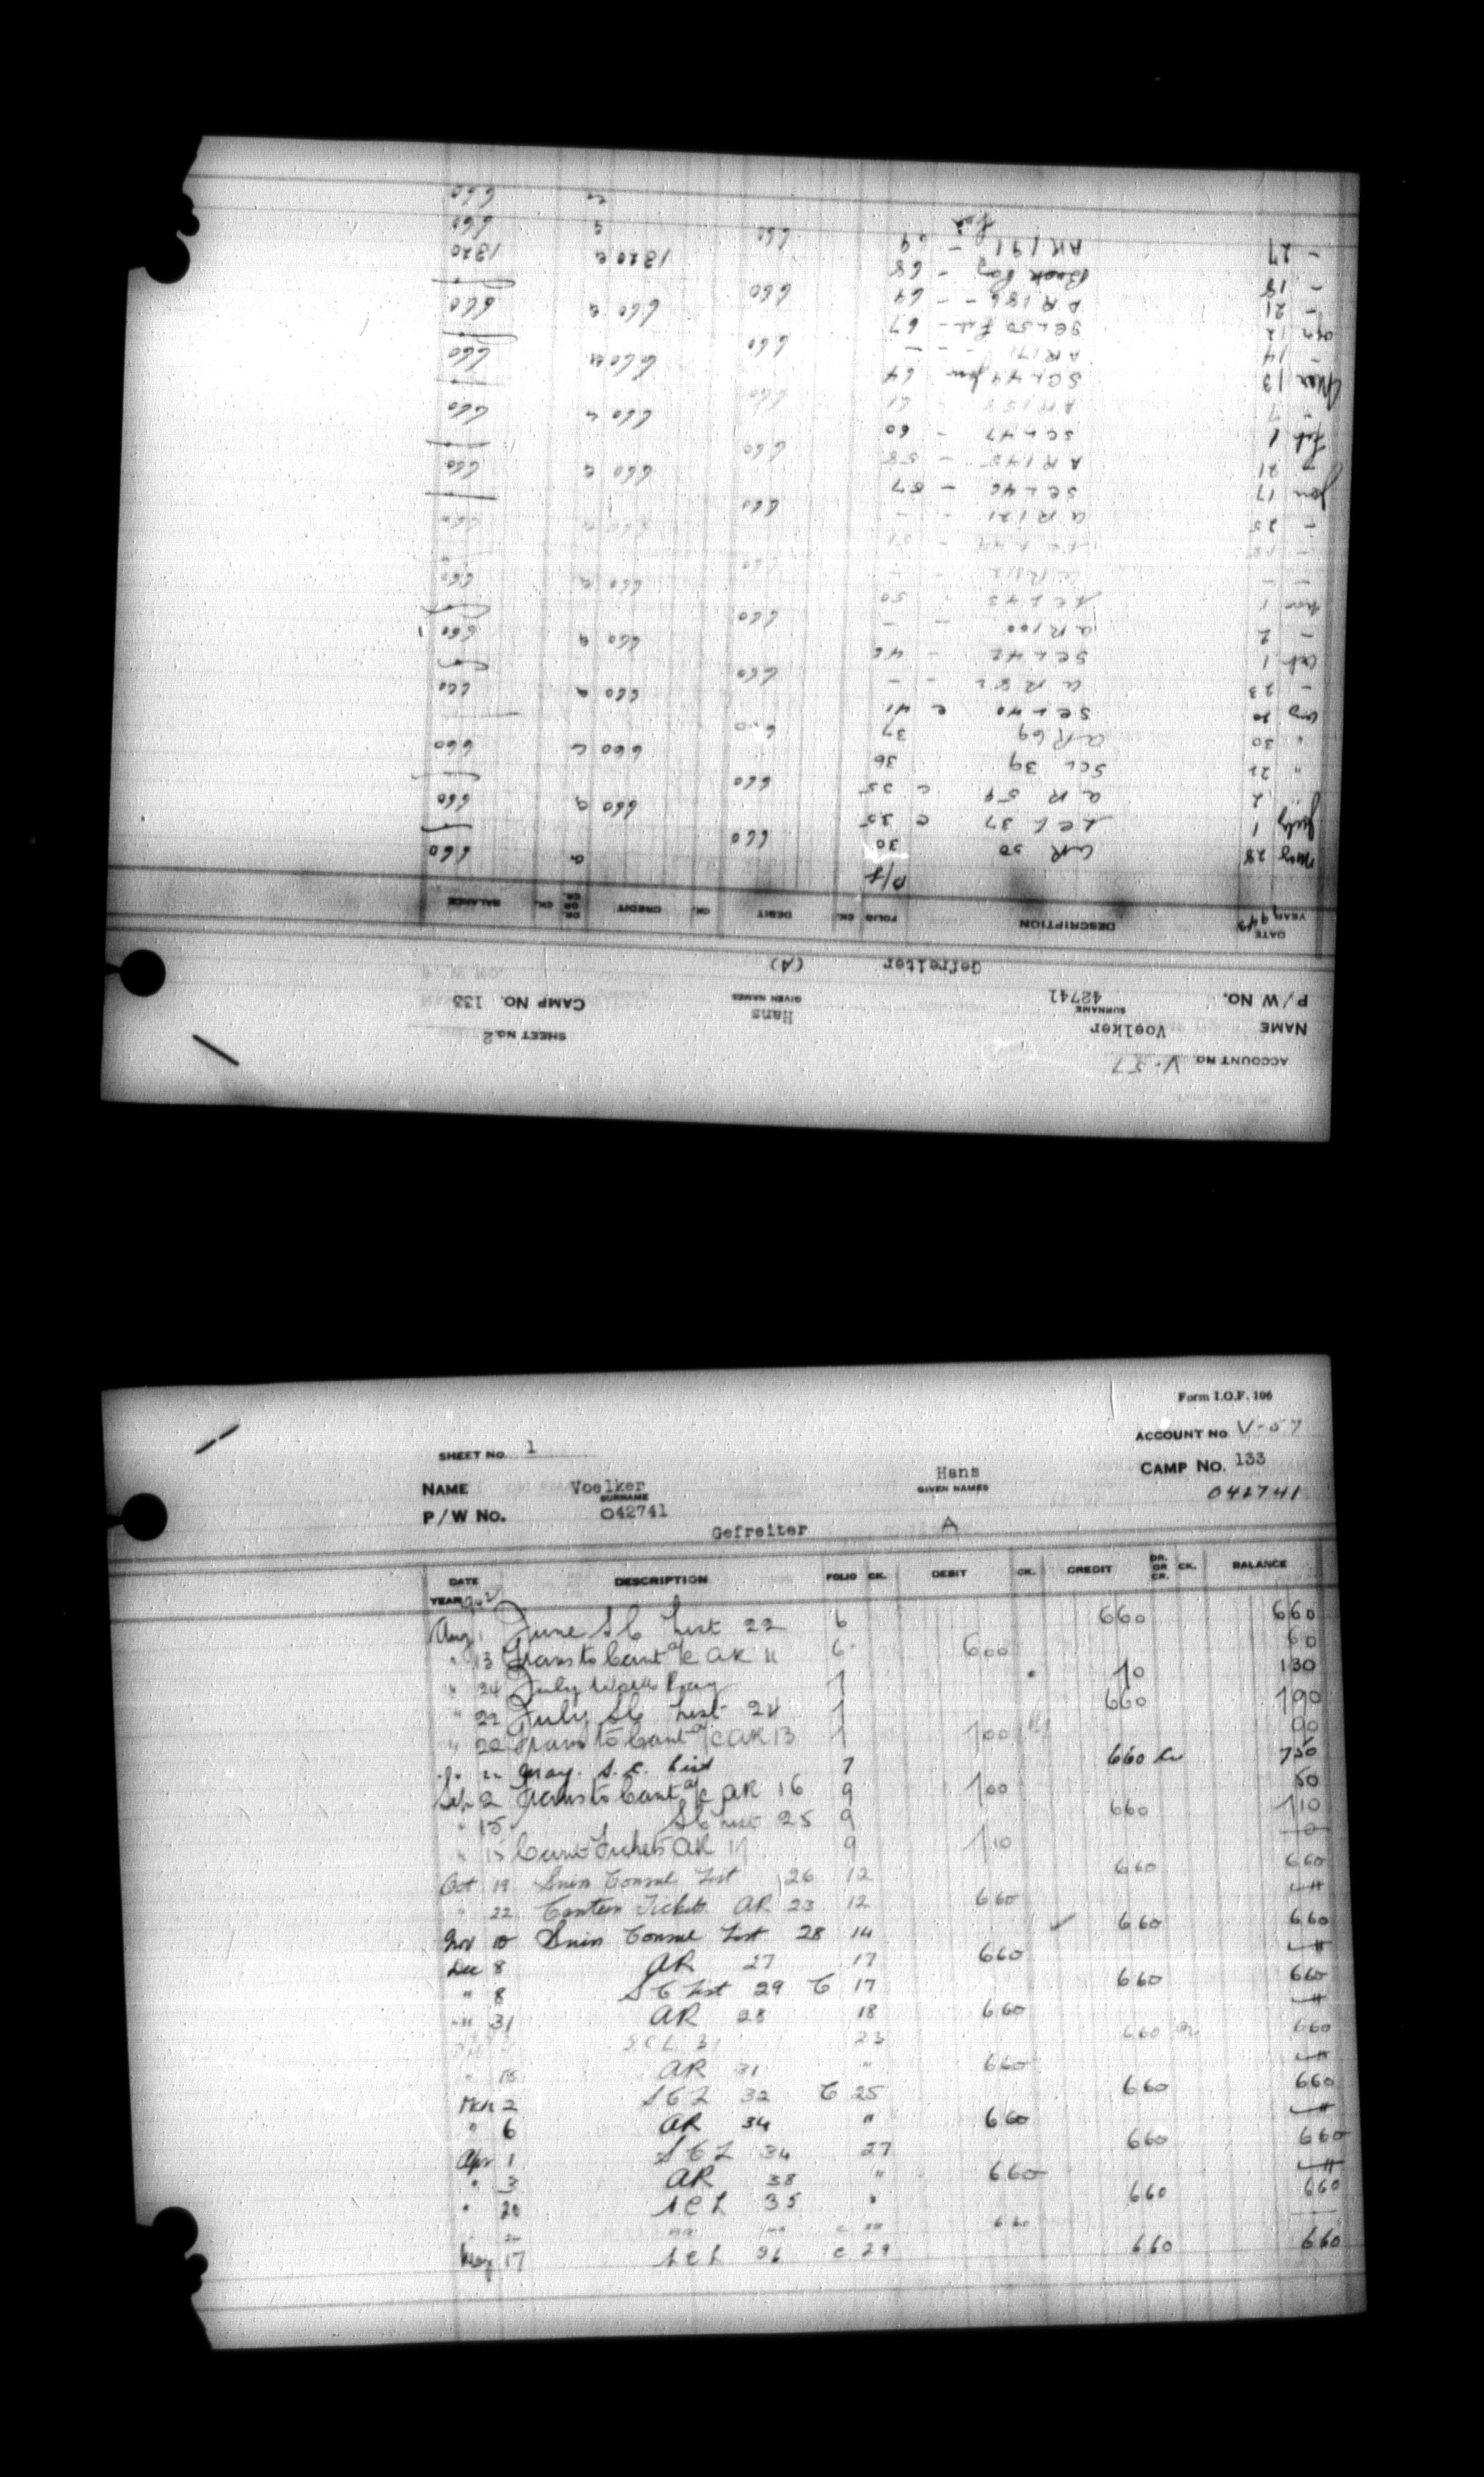 ACCOUNT NO. V-57
SHEET NO. 2
NAME Voelker Hans
SURNAME GIVEN NAMES
P/W NO. 42741 CAMP NO. 133
Gefreiter (A)
DATE DESCRIPTION FOLIO CK. DEBIT CK. CREDIT DR. OR CR. CK. BALANCE
YEAR
P/f
May 28 AR 50 30 660
July 1 SCL 37 c 35 660 660
2 AR 59 c 35 660
" 22 SCL 39 36 660 660
" 30 AR 69 37
Aug 20 SCL 40 c 41 660 660
- 23 AR 82 - - 660
Oct 1 SCL 42 - 46 660 660
- 2 AR 100 - - 660
Nov 1 SCL 43 50 660 660
- - AR 112 - 660
- 25 AR 121 - - 660
Jan 17 SCL 46 - 57 660 660
- 21 AR 145 - 58 660
Feb 1 SCL 47 - 60 660 660
" 7 AR 157 - 61 660
Mar 13 SCL 49 Jan 64 660 660
- 14 AR 171 - - 660
12 SCL 50 Feb - 67 660 660
- 21 AR 186 - - 69 660
- 18 - 68 1320 1320
- 27 AR 191 - 69 660 660
660
Form I.O.F. 106
ACCOUNT NO. V-57
SHEET NO. 1
CAMP NO. 133
NAME Voelker Hans
SURNAME GIVEN NAMES
042741
P/W No. 042741
Gefreiter A
DATE DESCRIPTION FOLIO CK. DEBIT CK. CREDIT DR. OR CR. CK. BALANCE
YEAR
Aug 1 June SC List 22 6 660 660
" 13 Trans to Cant a/c AR 11 6 600 60
" 24 July Work Pay 7 70 130
" 22 July SC List 24 7 660 790
" 22 Trans to Cant a/c AR 13 7 700 90
" " May. S.C. List 7 660 Cr 750
Sep 2 Trans to Cant a/c AR 16 9 700 50
" 15 SC List 25 9 660 710
" 15 Cant Tickets AR 17 9 710 0
Oct 19 Swiss Consul List 26 12 660 660
" 22 Canteen Tickets AR 23 12 660
Nov 10 Swiss Consul List 28 14 660 660
Dec 8 AR 27 17 660
" 8 SC List 29 C 17 660 660
" 31 AR 28 18 660
SCL 31 23 660 660
" 18 AR 31 " 660
Mch 2 SCL 32 C 25 660 660
" 6 AR 34 " 660
Apr 1 SCL 34 27 660 660
" 3 AR 38 " 660
" 20 SCL 35 " 660 660
660
May 17 SCL 36 c 29 660 660